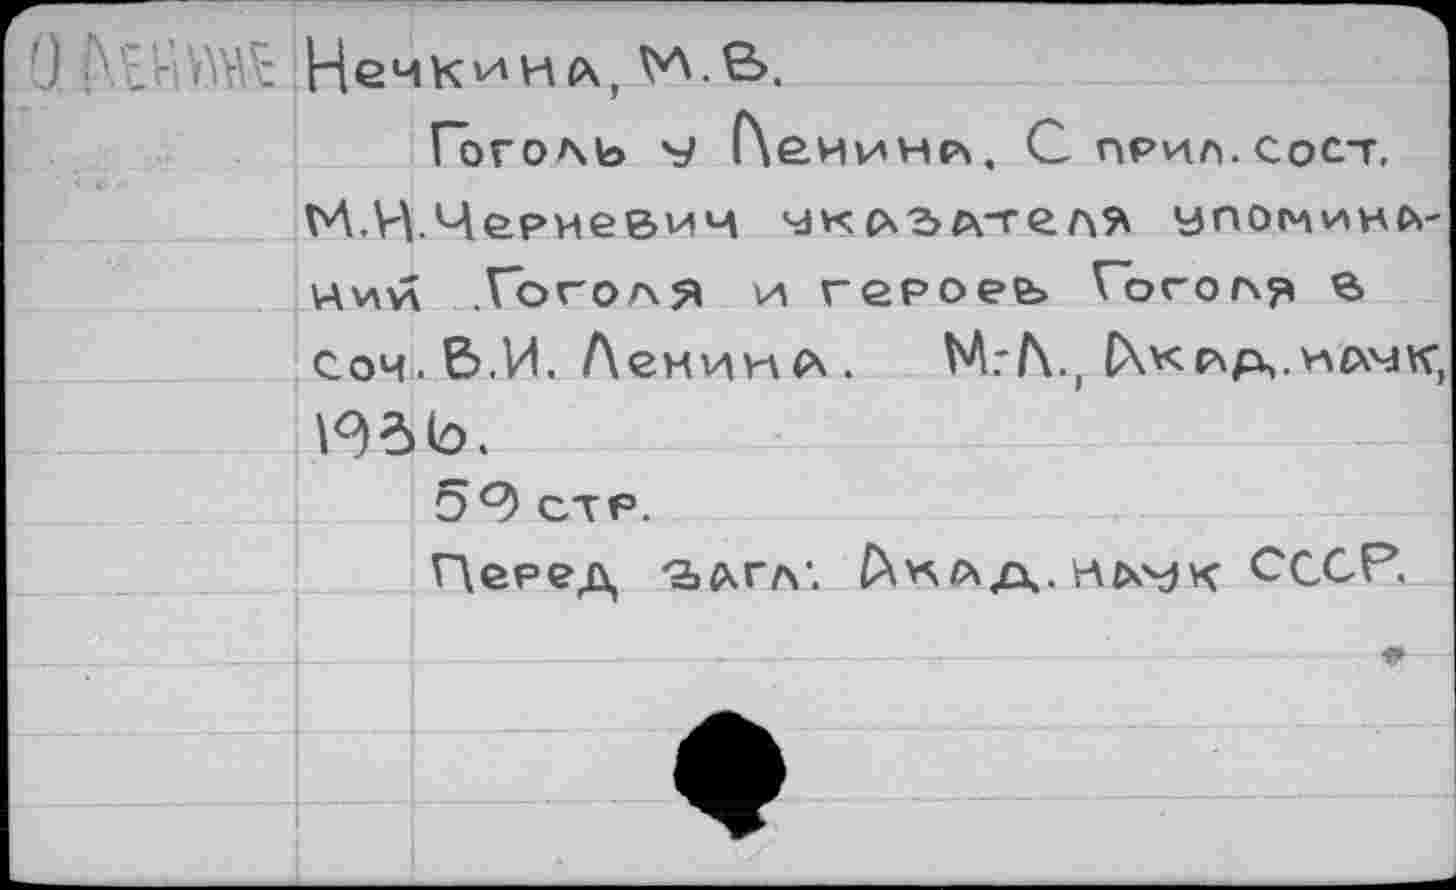 О ЛЕНИНЕ
Нечкина, М.В.
Гоголь у Ленина. С прил. сост.
М.Н.Черневич указателя упомина-
ний Гоголя и героев Гоголя в
соч. В.И. Ленина. М.-Л., Акад. наук,
1936.
59 стр.
Перед загл: Акад. наук СССР.